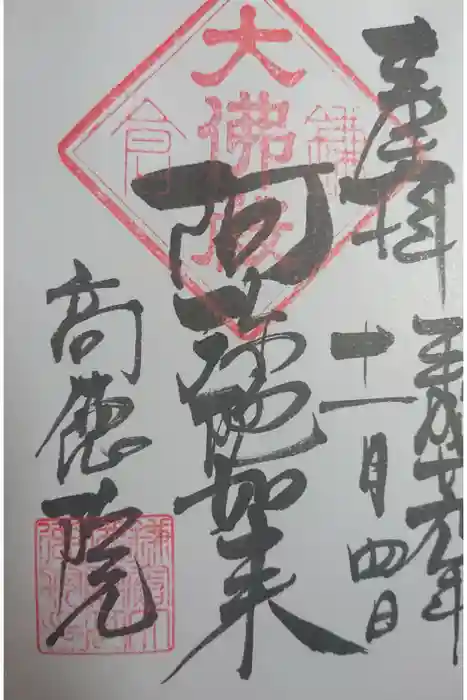 奉拝
平成廿九年
十一月四日
大佛殿
鎌倉
阿彌陀如来
高徳院